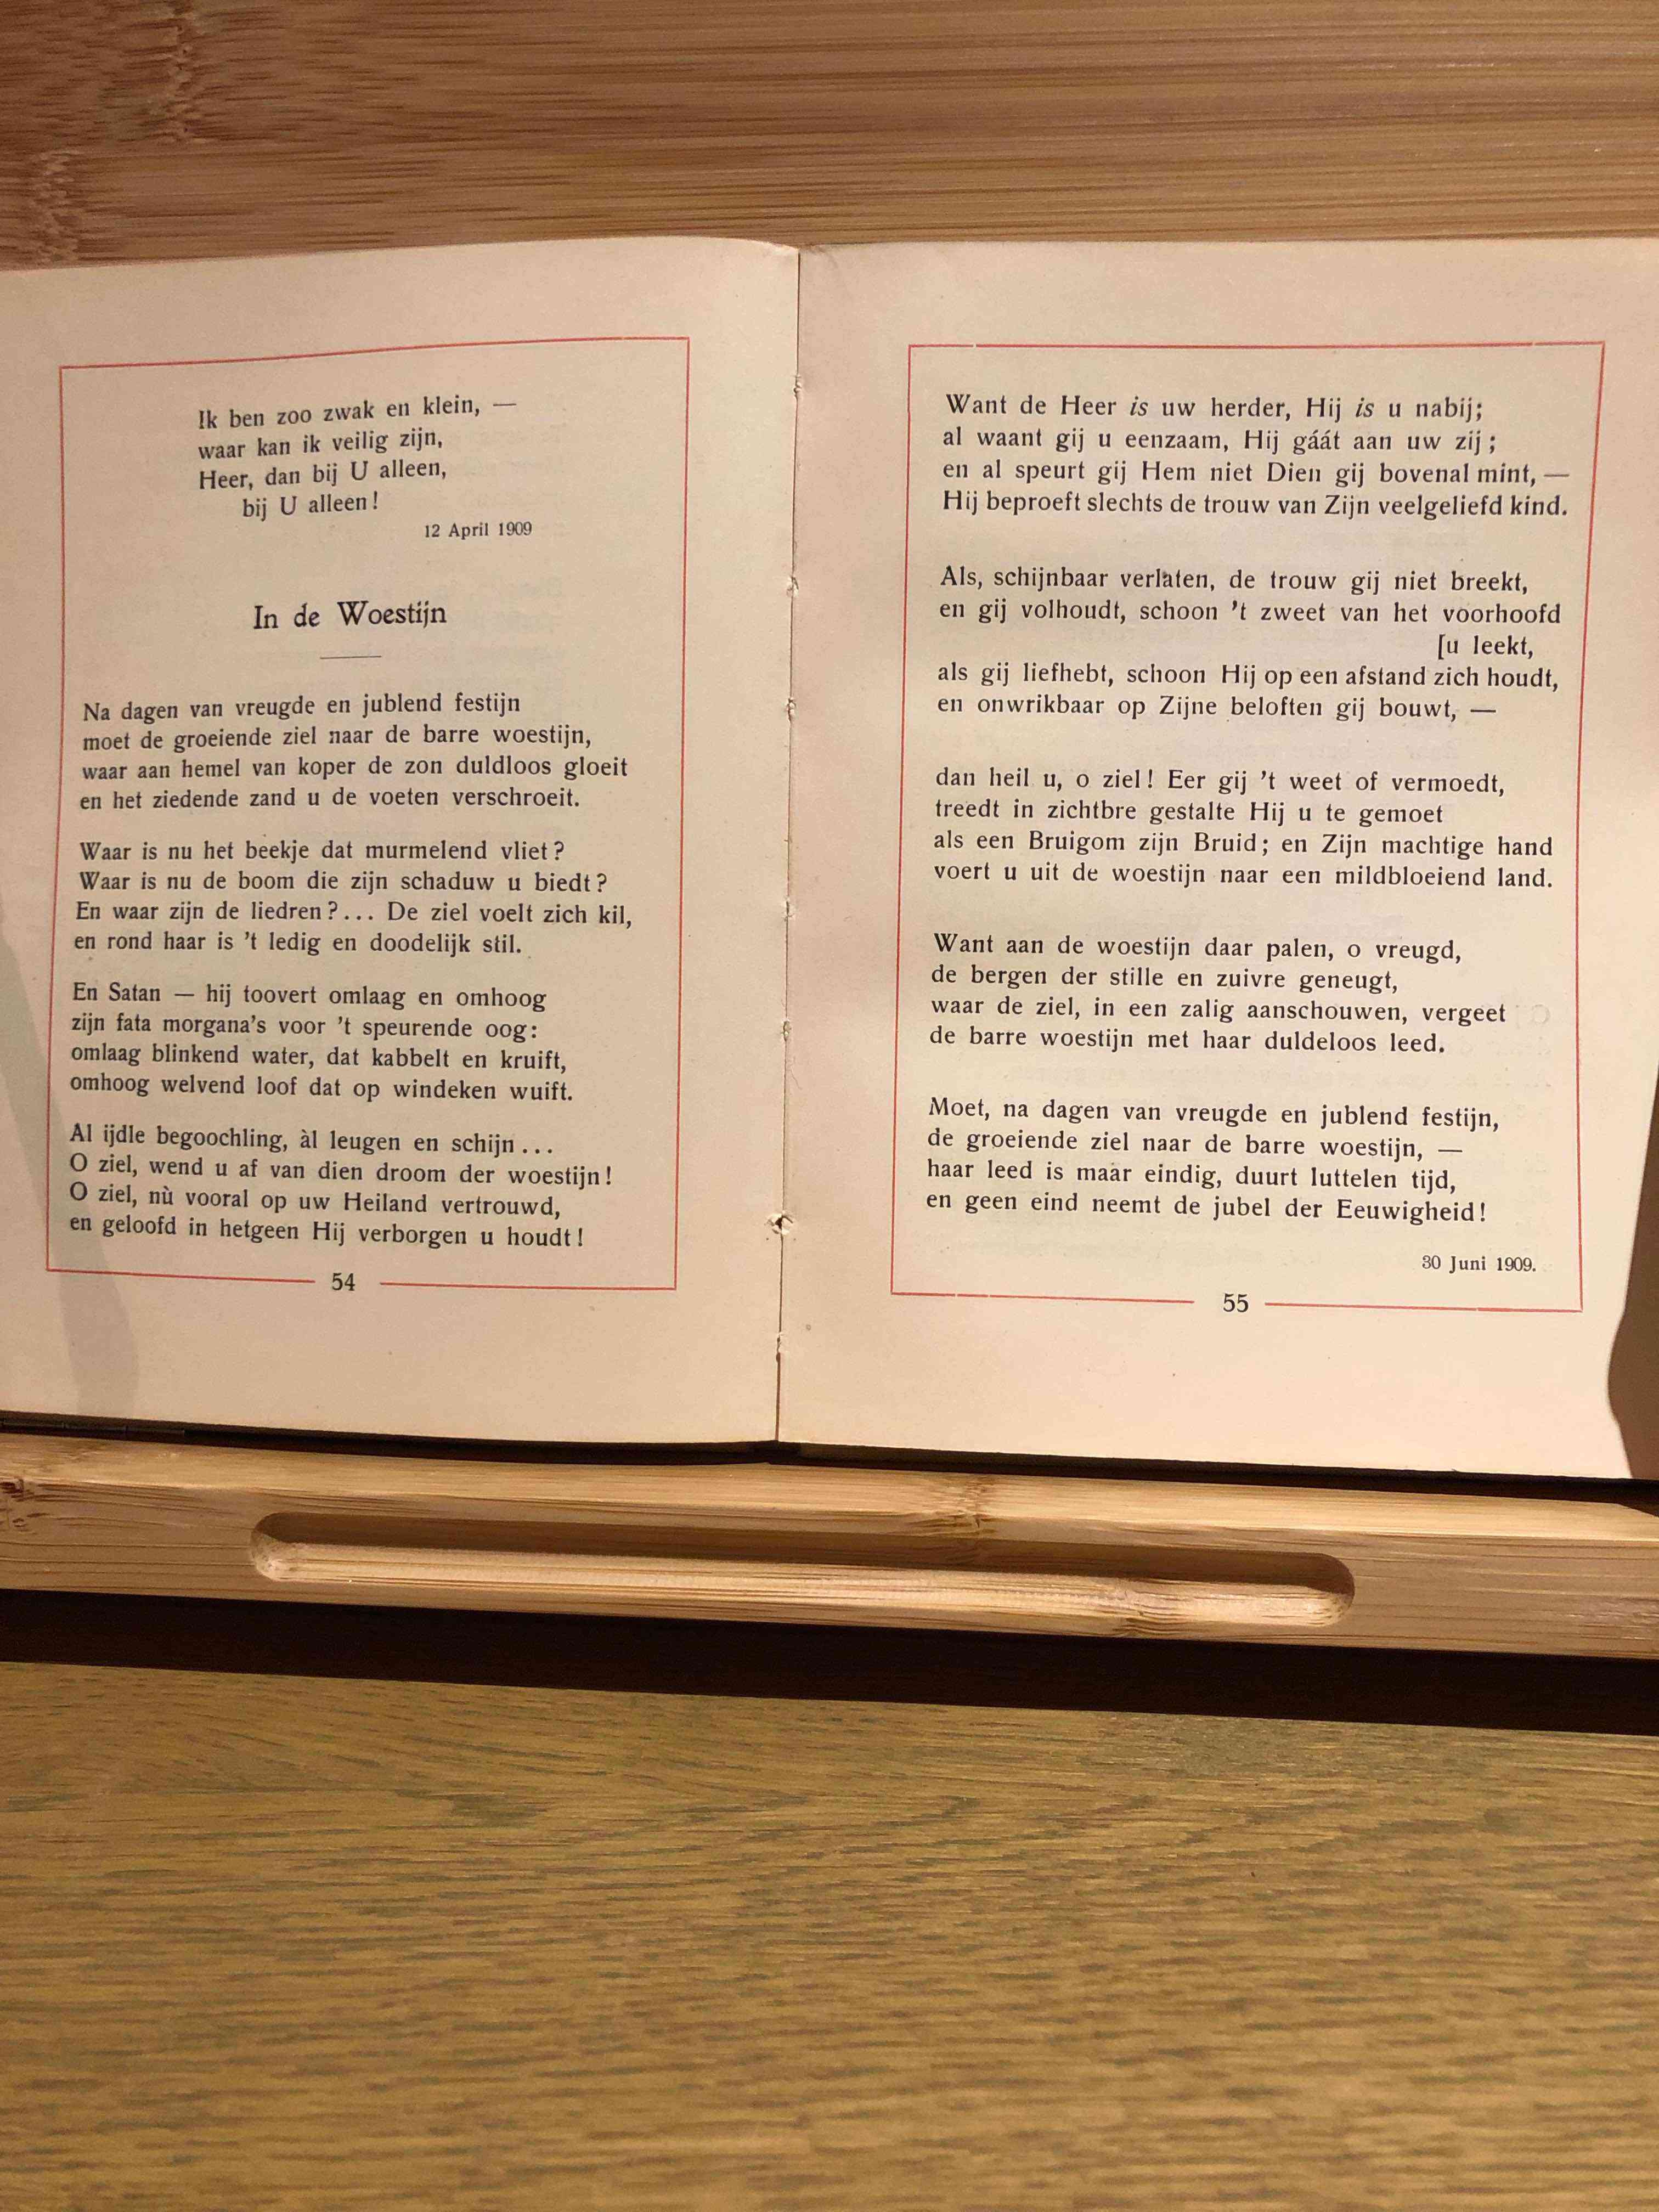 Ik ben zoo zwak en klein, —
waar kan ik veilig zijn,
Heer, dan bij U alleen,
bij U alleen!
12 April 1909
In de Woestijn
Na dagen van vreugde en jublend festijn
moet de groeiende ziel naar de barre woestijn,
waar aan hemel van koper de zon duldloos gloeit
en het ziedende zand u de voeten verschroeit.
Waar is nu het beekje dat murmelend vliet?
Waar is nu de boom die zijn schaduw u biedt?
En waar zijn de liedren?... De ziel voelt zich kil,
en rond haar is 't ledig en doodelijk stil.
En Satan — hij toovert omlaag en omhoog
zijn fata morgana's voor 't speurende oog:
omlaag blinkend water, dat kabbelt en kruift,
omhoog welvend loof dat op windeken wuift.
Al ijdle begoochling, àl leugen en schijn...
O ziel, wend u af van dien droom der woestijn!
O ziel, nù vooral op uw Heiland vertrouwd,
en geloofd in hetgeen Hij verborgen u houdt!
54
Want de Heer is uw herder, Hij is u nabij;
al waant gij u eenzaam, Hij gáát aan uw zij;
en al speurt gij Hem niet Dien gij bovenal mint, —
Hij beproeft slechts de trouw van Zijn veelgeliefd kind.
Als, schijnbaar verlaten, de trouw gij niet breekt,
en gij volhoudt, schoon 't zweet van het voorhoofd
[u leekt,
als gij liefhebt, schoon Hij op een afstand zich houdt,
en onwrikbaar op Zijne beloften gij bouwt, —
dan heil u, o ziel! Eer gij 't weet of vermoedt,
treedt in zichtbre gestalte Hij u te gemoet
als een Bruigom zijn Bruid; en Zijn machtige hand
voert u uit de woestijn naar een mildbloeiend land.
Want aan de woestijn daar palen, o vreugd,
de bergen der stille en zuivre geneugt,
waar de ziel, in een zalig aanschouwen, vergeet
de barre woestijn met haar duldeloos leed.
Moet, na dagen van vreugde en jublend festijn,
de groeiende ziel naar de barre woestijn, —
haar leed is maar eindig, duurt luttelen tijd,
en geen eind neemt de jubel der Eeuwigheid!
30 Juni 1909.
55